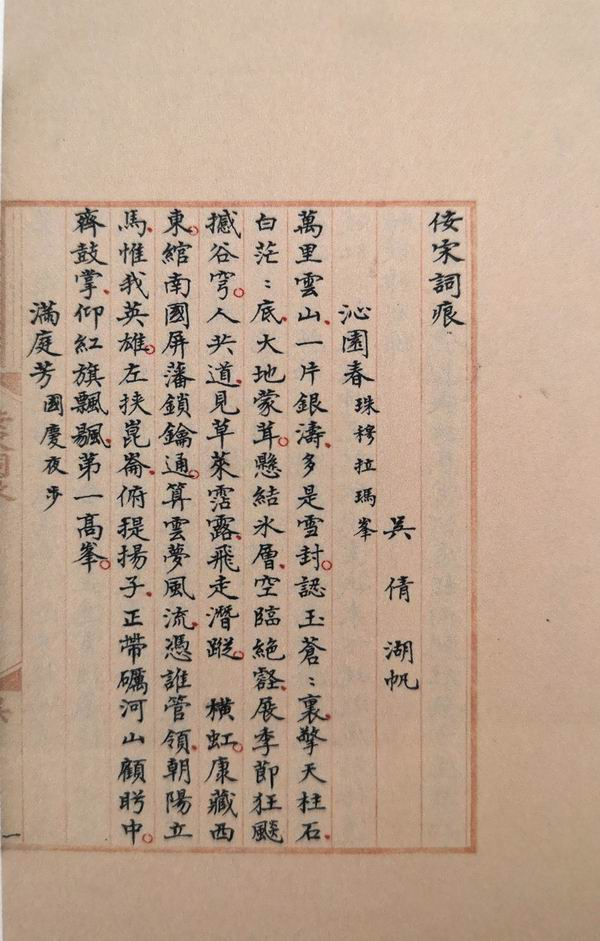 佞宋詞痕
吳倩湖帆
沁園春 珠穆拉瑪峯
萬里雲山一片銀濤多是雪封認玉蒼〻裏擎天柱石
白茫〻底大地蒙茸懸結氷層空臨絶壑展季節狂飈
撼谷穹人共道見草萊霑露飛走潛蹤 橫虹康藏西
東綰南國屏藩鎖鑰通算雲夢風流憑誰管領朝陽立
馬惟我英雄左挾崑崙俯提揚子正帶礪河山顧盻中
齊鼓掌仰紅旗飄颻第一高峯
滿庭芳 國慶夜步
一